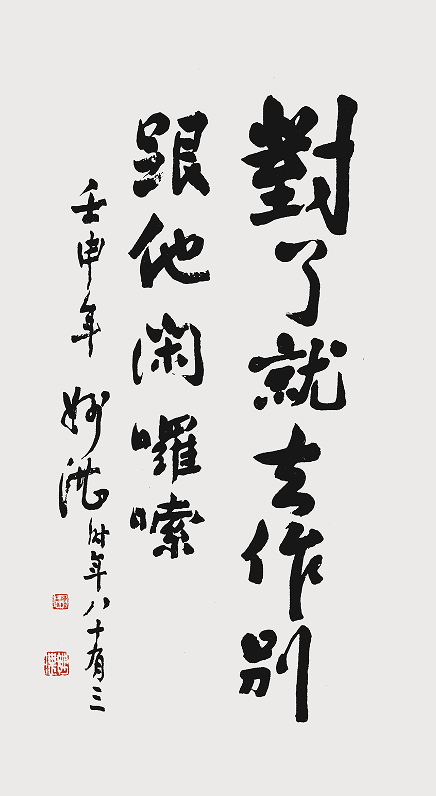 對了就去作別
跟他閑囉嗦
壬申年 妙湛 時年八十有三